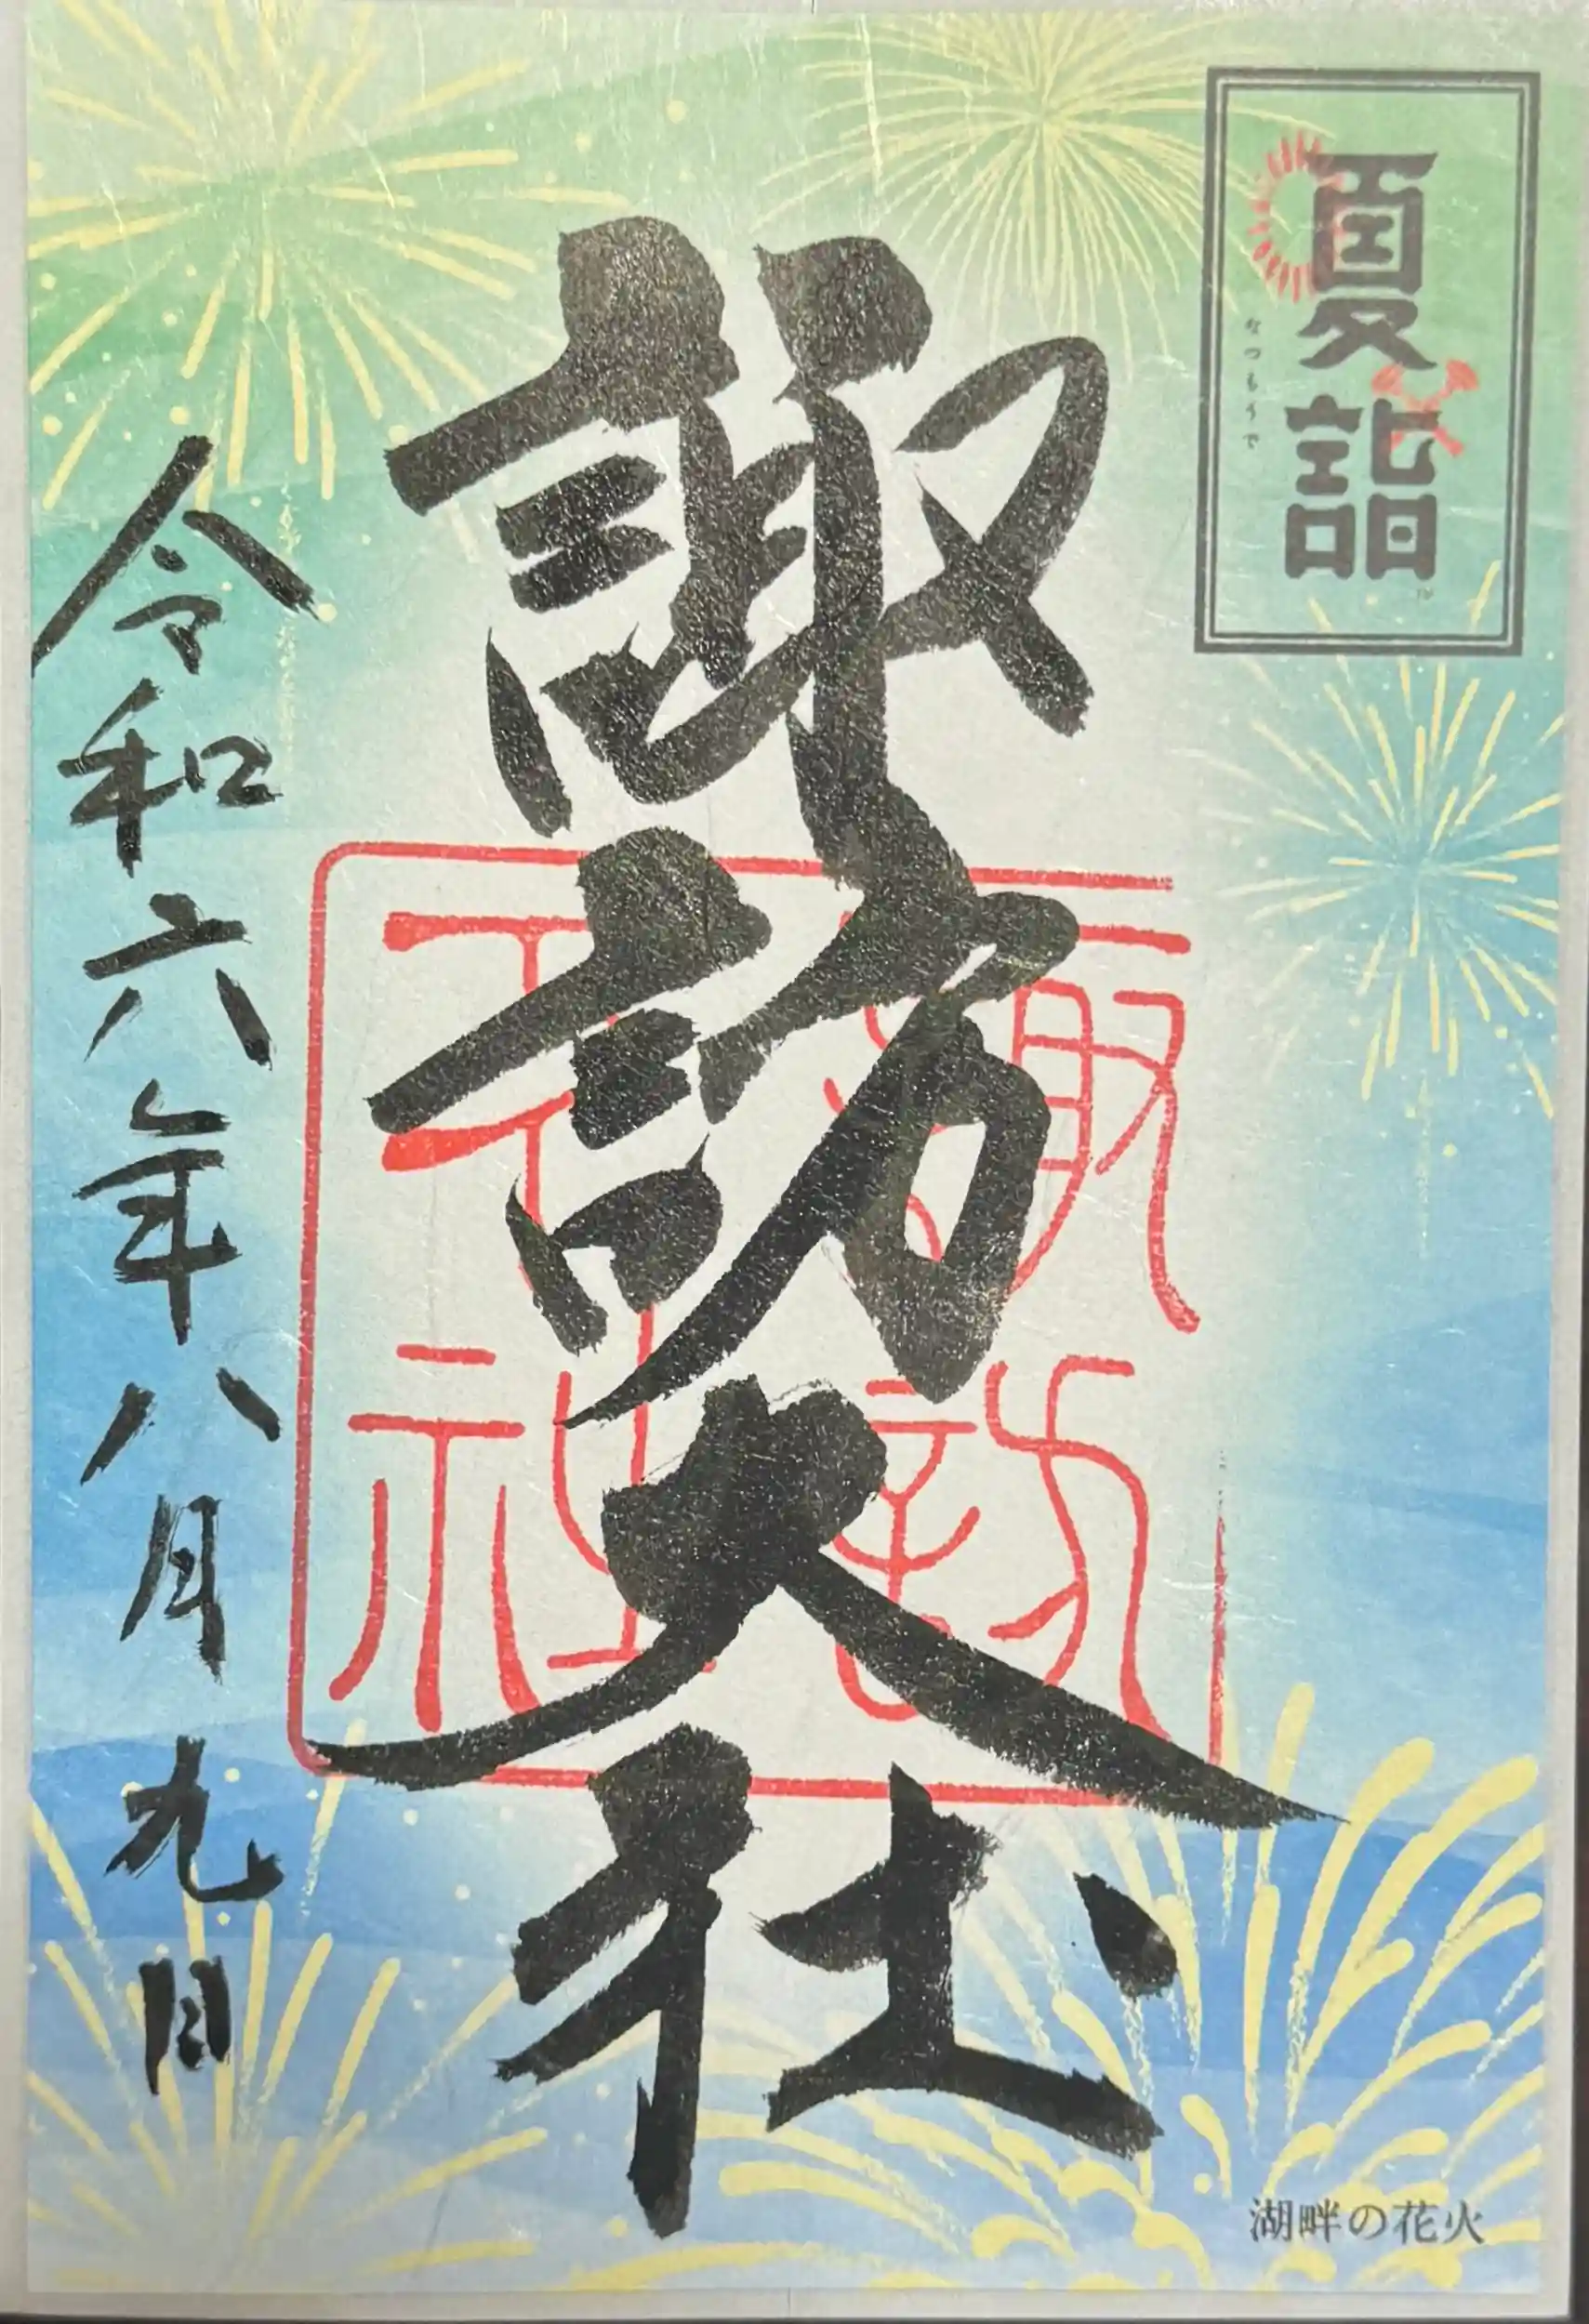 夏詣
なつもうで
諏訪大社
令和六年八月九日
湖畔の花火